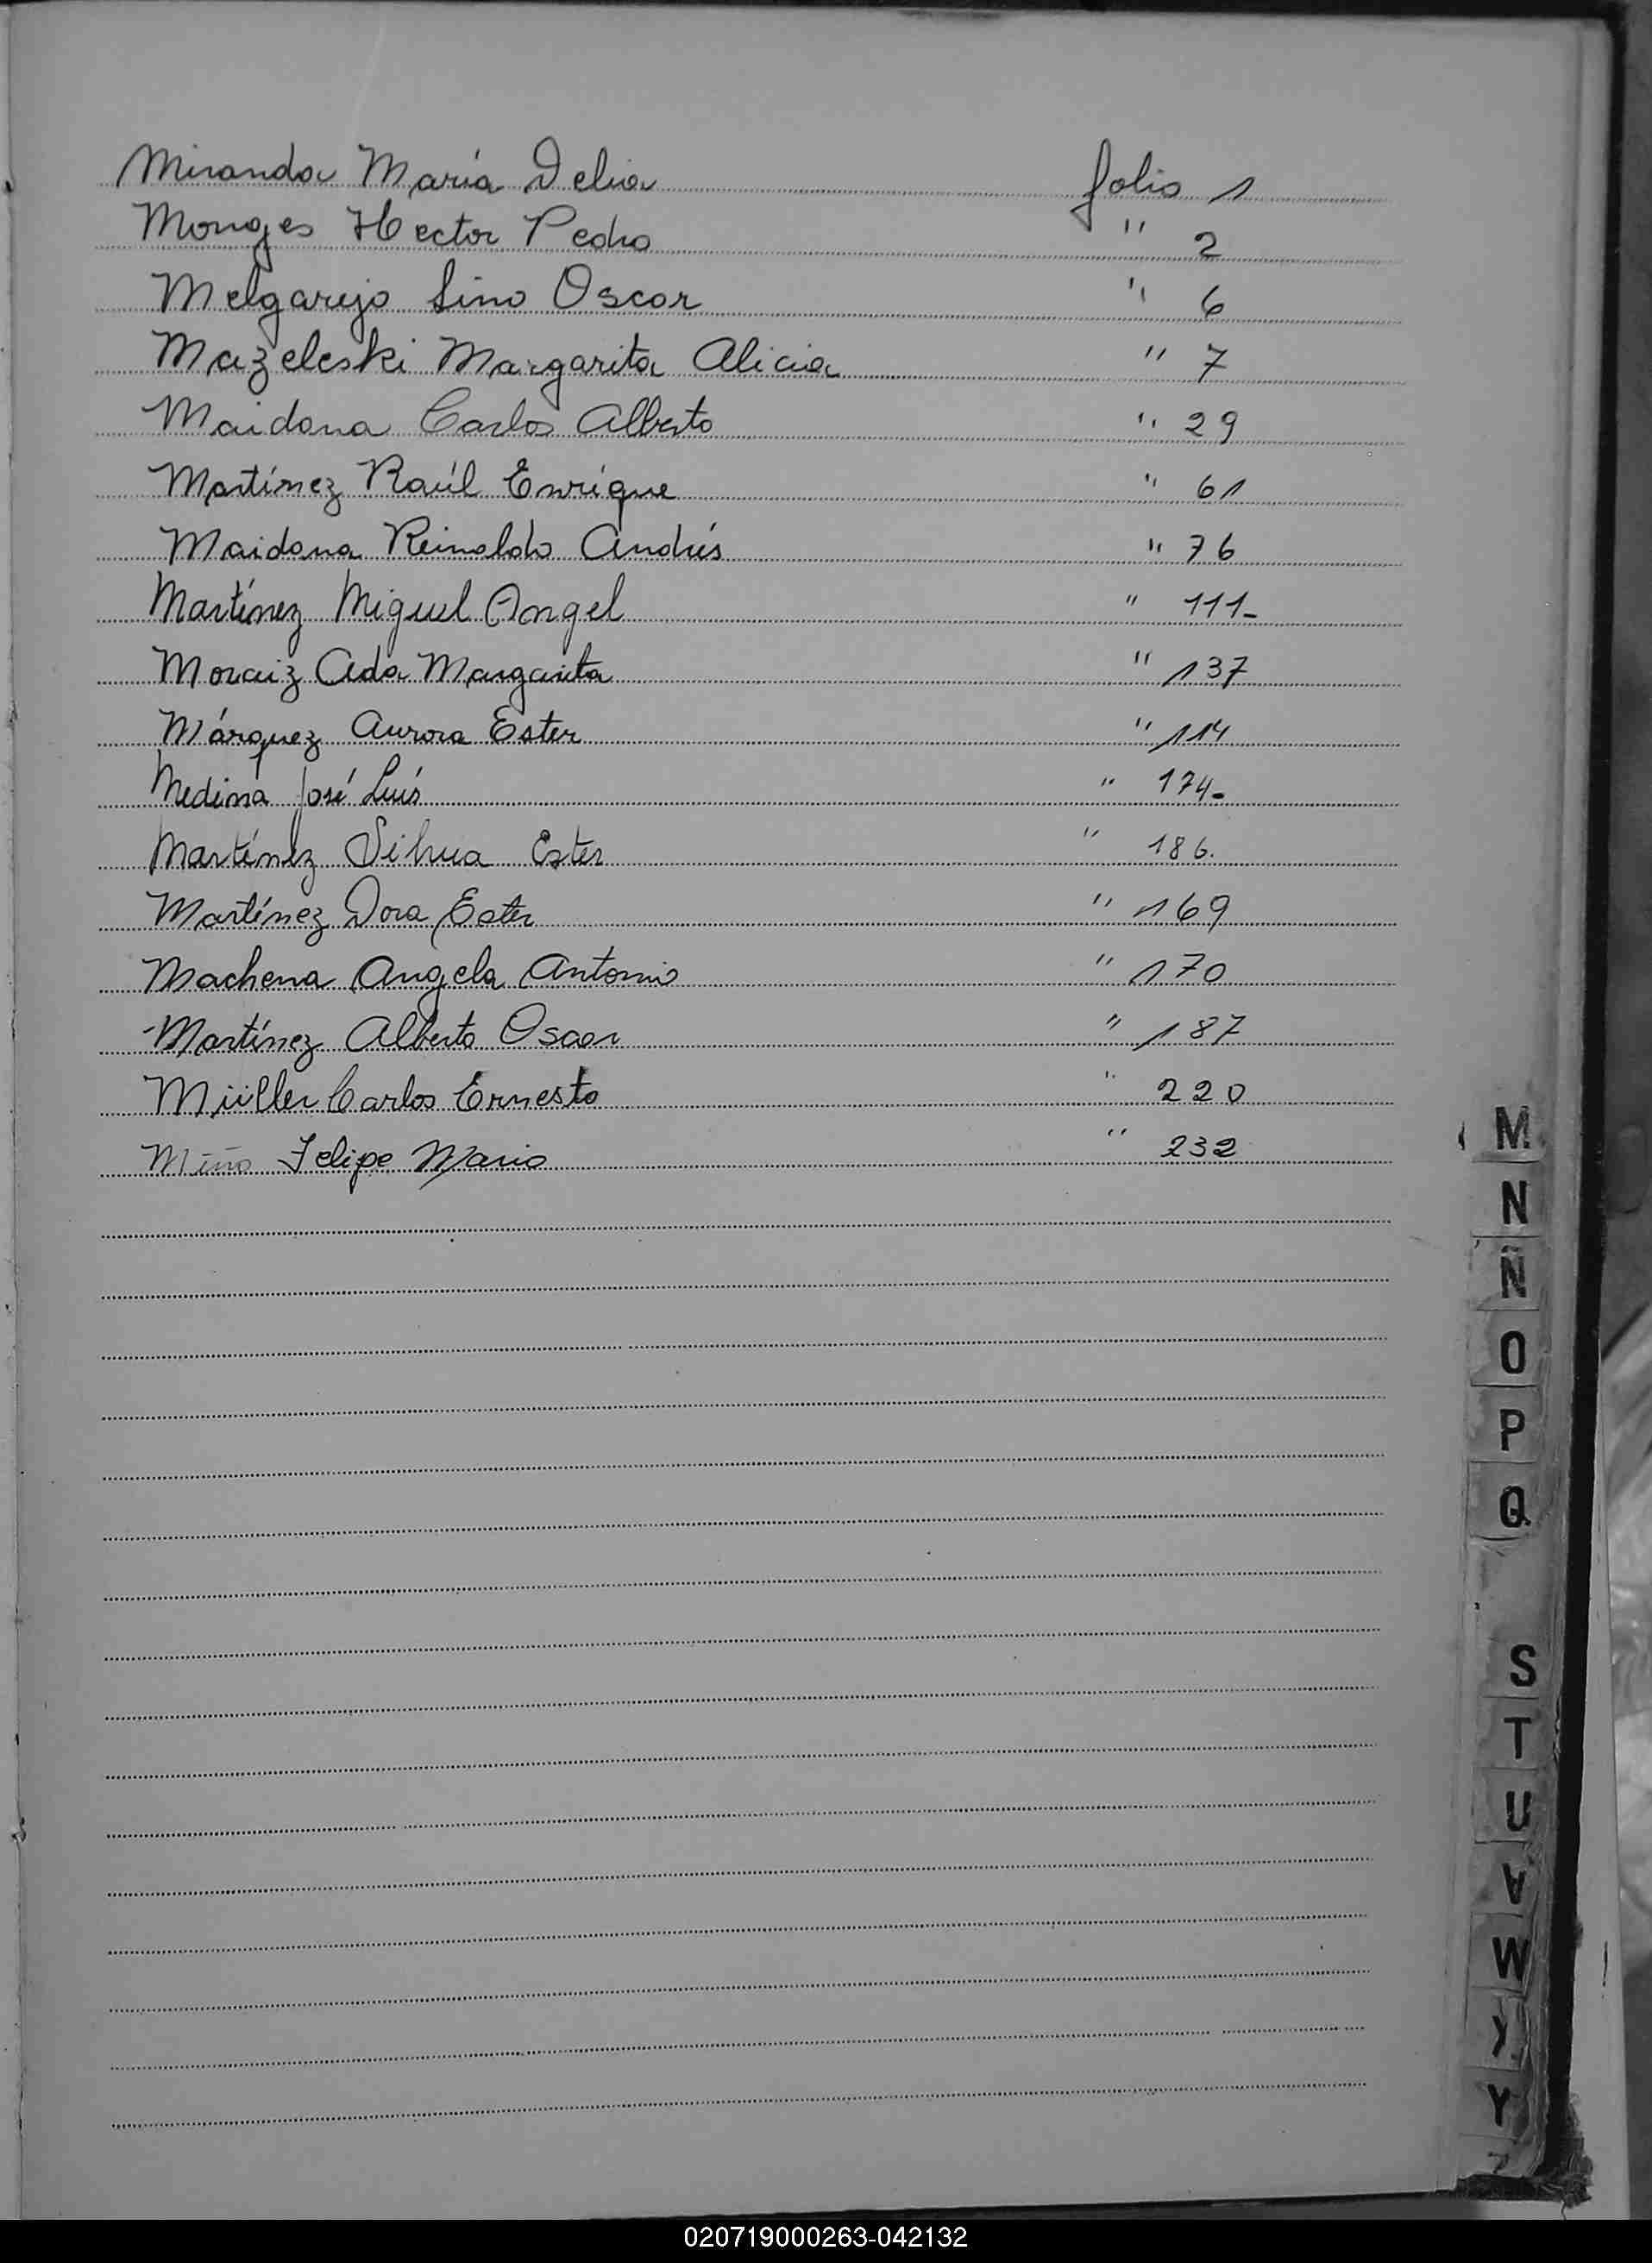 Miranda María Delia folio 1
Monges Hector Pedro " 2
Melgarejo Lino Oscar " 6
Mazeleski Margarita Alicia " 7
Maidana Carlos Alberto " 29
Martínez Raúl Enrique " 61
Maidana Reinaldo Andrés " 76
Martínez Miguel Angel " 111-
Moraiz Ada Margarita " 137
Márquez Aurora Ester " 114
Medina José Luís " 174-
Martínez Ester " 186.
Martínez Dora Ester " 169
Machena Angela Antonio " 170
-Martínez Alberto Oscar " 187
Müller Carlos Ernesto " 220
Miño Felipe Mario " 232
M
N
Ñ
O
P
Q
S
T
U
V
W
Y
020719000263-042132